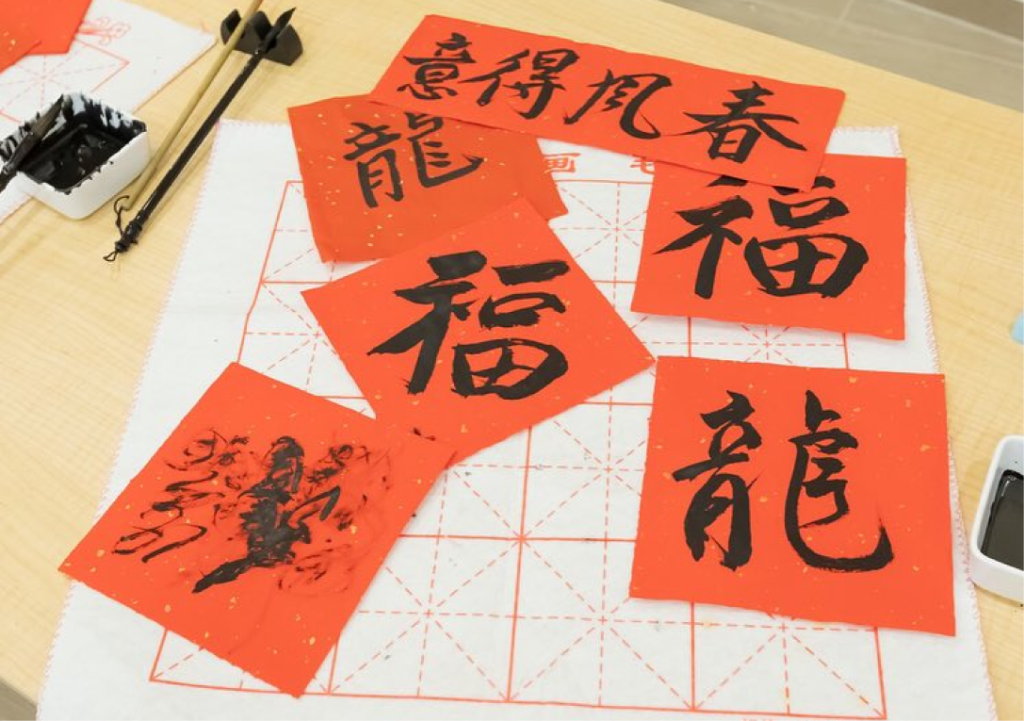 春风得意
龍
画
福
福
龍